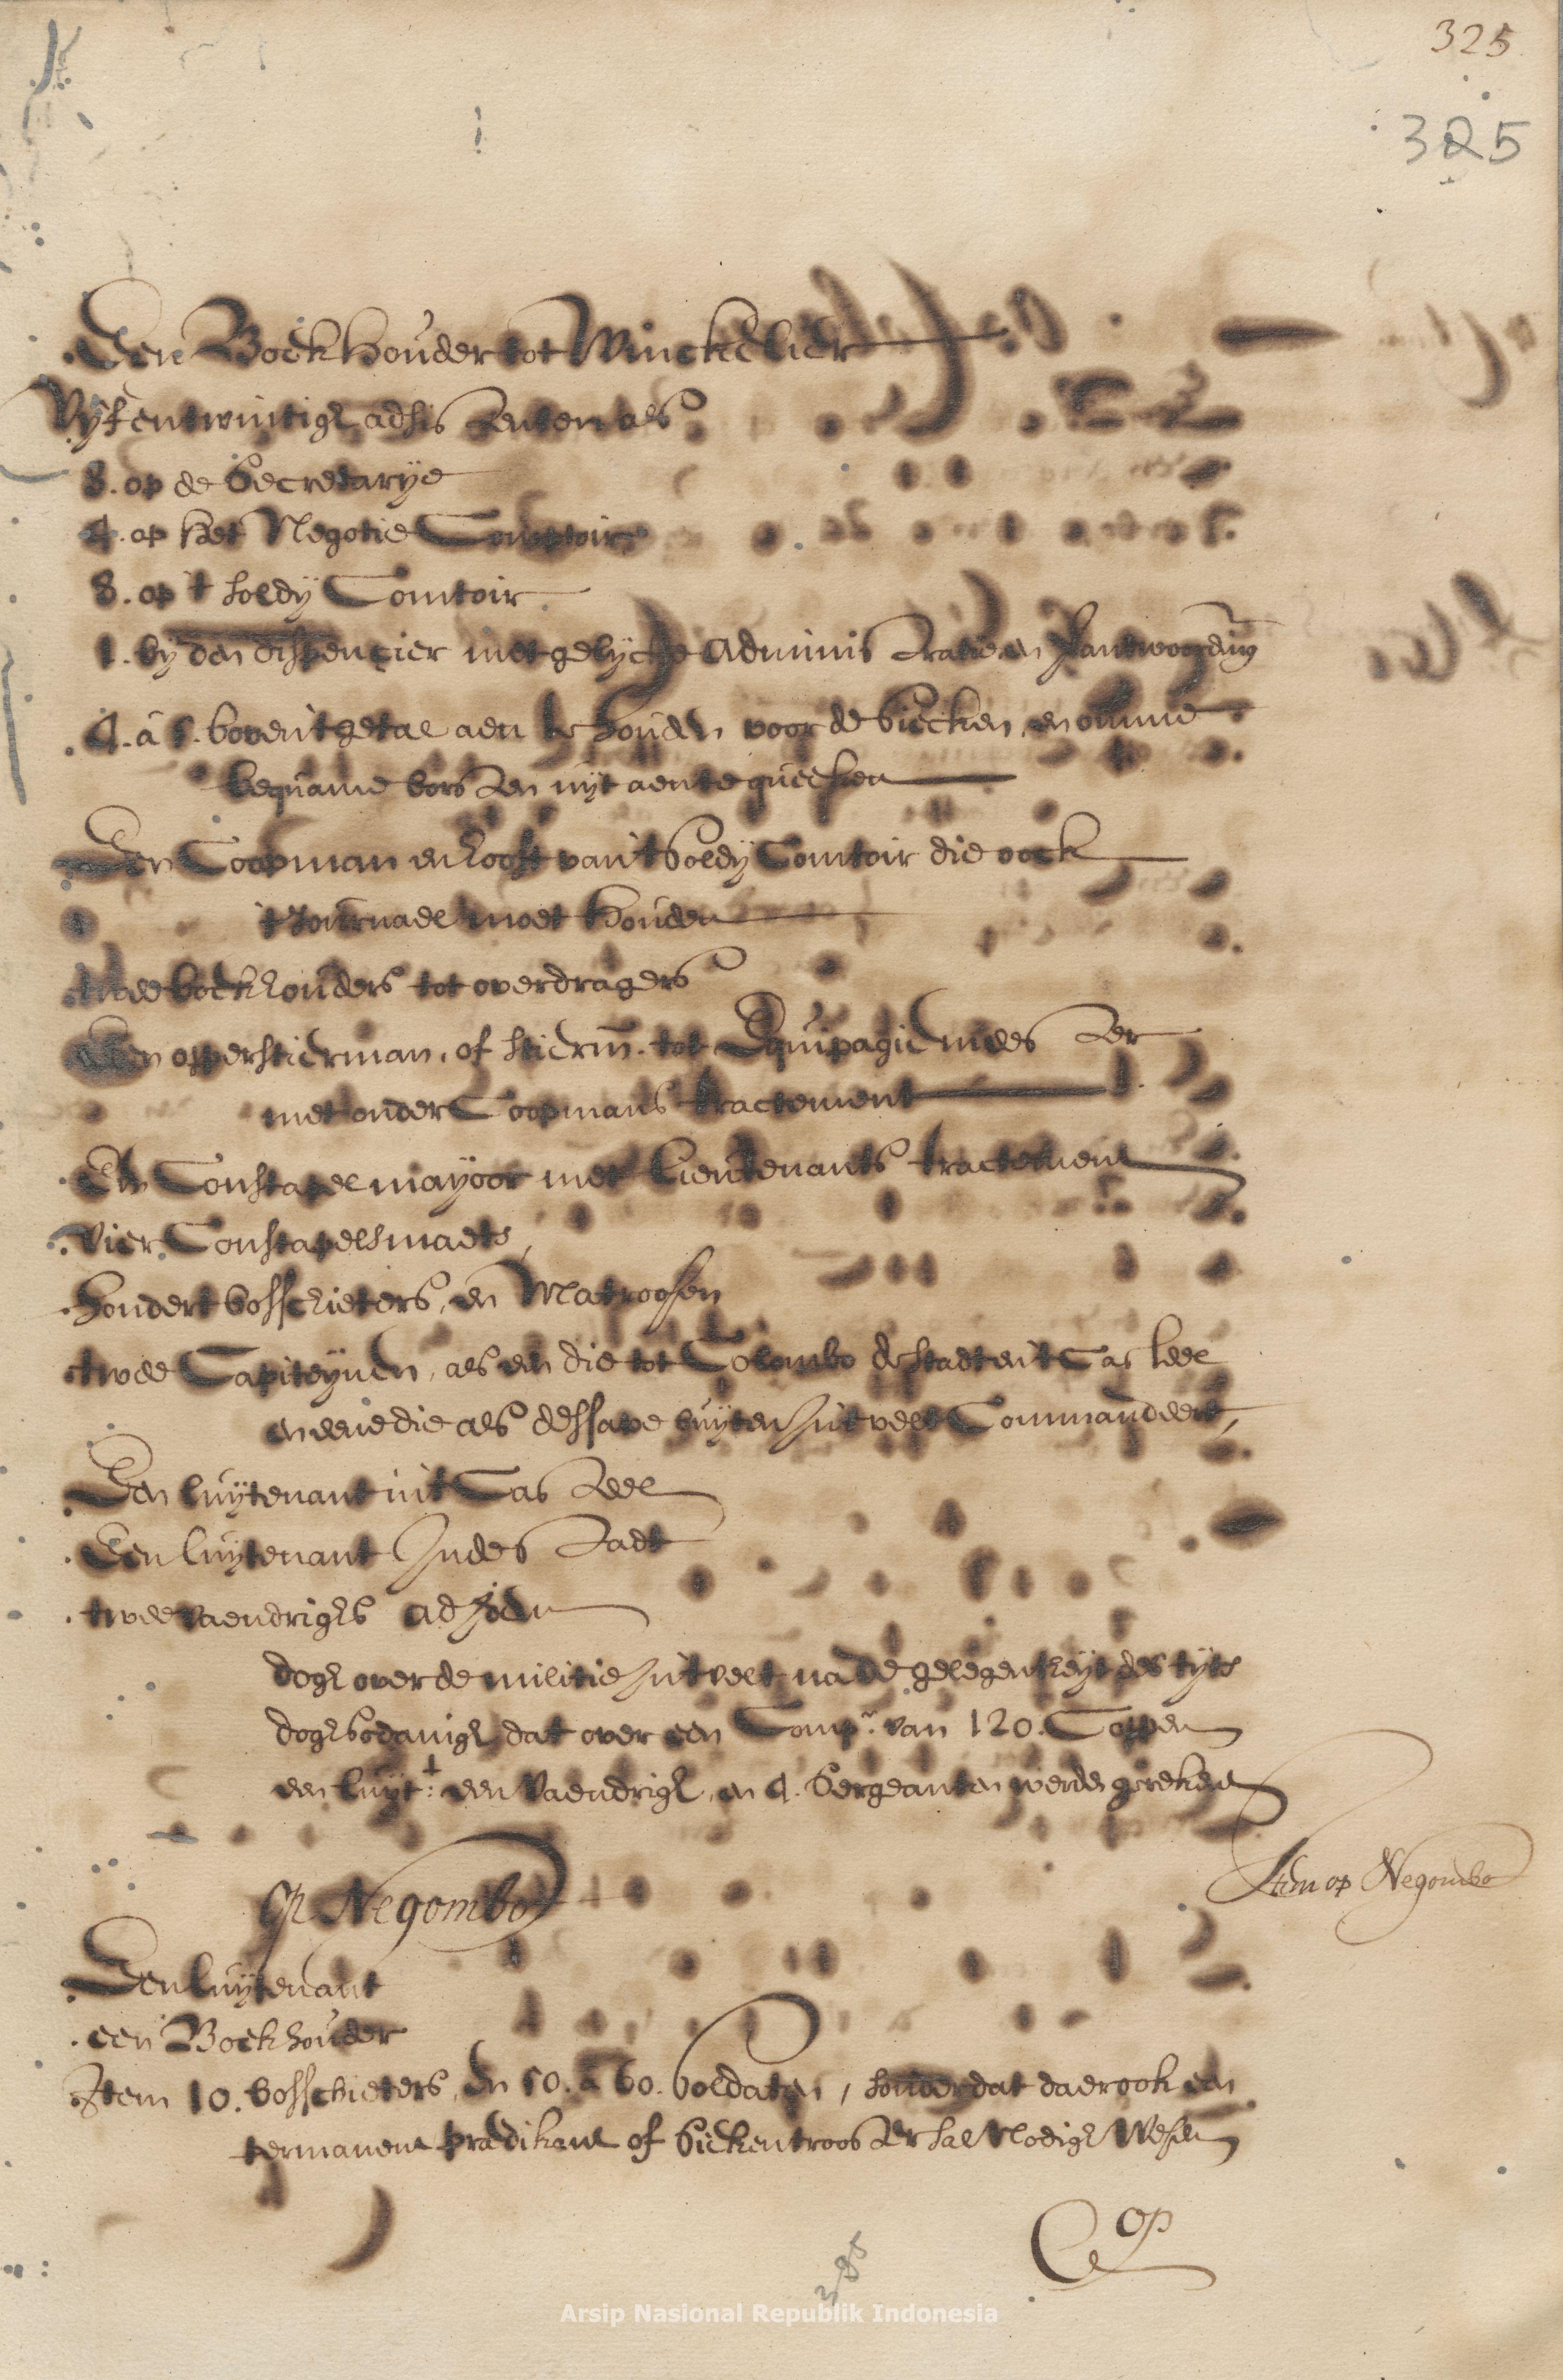 325
325
Een Boekhouder tot Winckelier
Vyfentwintigh adsistenten als
8. op de Secretarye
4. op het Negotie Comptoir
8. op 't soldy Comtoir
1. by den dispencier met gelycke administratie en verantwoording
4. à 5. boven 't getal aen te houden voor de siecken, en omme
bequame borsten uyt aen te queeken
Een Coopman en hooft van 't Soldy Comtoir die oock
't Journael moet houden
twee boekhouders tot overdragers
Een opperstierman, of stierm. tot Equipagiemeester
met onder Coopmans tractement
Een Constapel mayoor met Lieutenants tractement
Vier Constapelsmaets,
hondert bosschieters, en Matroosen
twee Capiteynen, als een die tot Colombo de stadt en 't Casteel
en eene die als dessave buyten Jn 't velt Commandeert,
Een luytenant in 't Casteel
Een luytenant Jn de Stadt
twee vaendrighs ad Jdem
dogh over de militie Jn 't velt na de gelegentheyt des tyts
dogh sodanigh dat over een Comp. van 120. Coppen
een luyt: een Vaendrigh, en 4. Sergeanten werden gerekent
Op Negombo
Item op Negombo
Een luytenant
een Boekhouder
Item 10. bosschieters, en 50. à 60. Soldaten, sonder dat daer ook een
permanent predikant of Sieckentrooster sal Nodigh Wesen
Op
385
Arsip Nasional Republik Indonesia